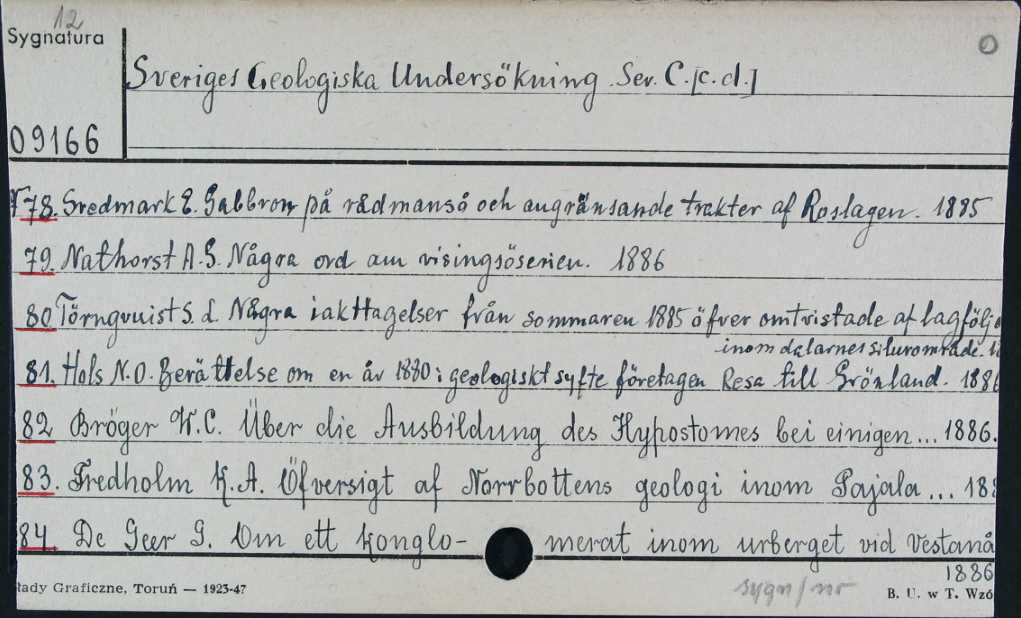 12
Sygnatura
O
Sveriges Geologiska Undersökning. Ser. C. [c.d.]
09166
78. Svedmark E. Gabbron på rådmansö och angränsande trakter af Roslagen. 1885
79. Nathorst A.G. Några ord am visingsöserien. 1886
80 Törnqvuist S. L. Några iakttagelser från sommaren 1885 öfver omtvistade af lagfölj
inom dalarnes silurområde.
81. Hols N.O. Berättelse om en år 1880 i geologiskt syfte företagen Resa till Grönland. 1886
82 Bröger W.C. Über die Ausbildung des Hypostomes bei einigen... 1886.
83. Fredholm K.A. Öfversigt af Norrbottens geologi inom Pajala ... 188
84. De Geer G. Om ett konglo- merat inom urberget vid Vestanå
1886
łady Graficzne, Toruń — 1923-47
sygn/nr
B. U. w T. Wzó